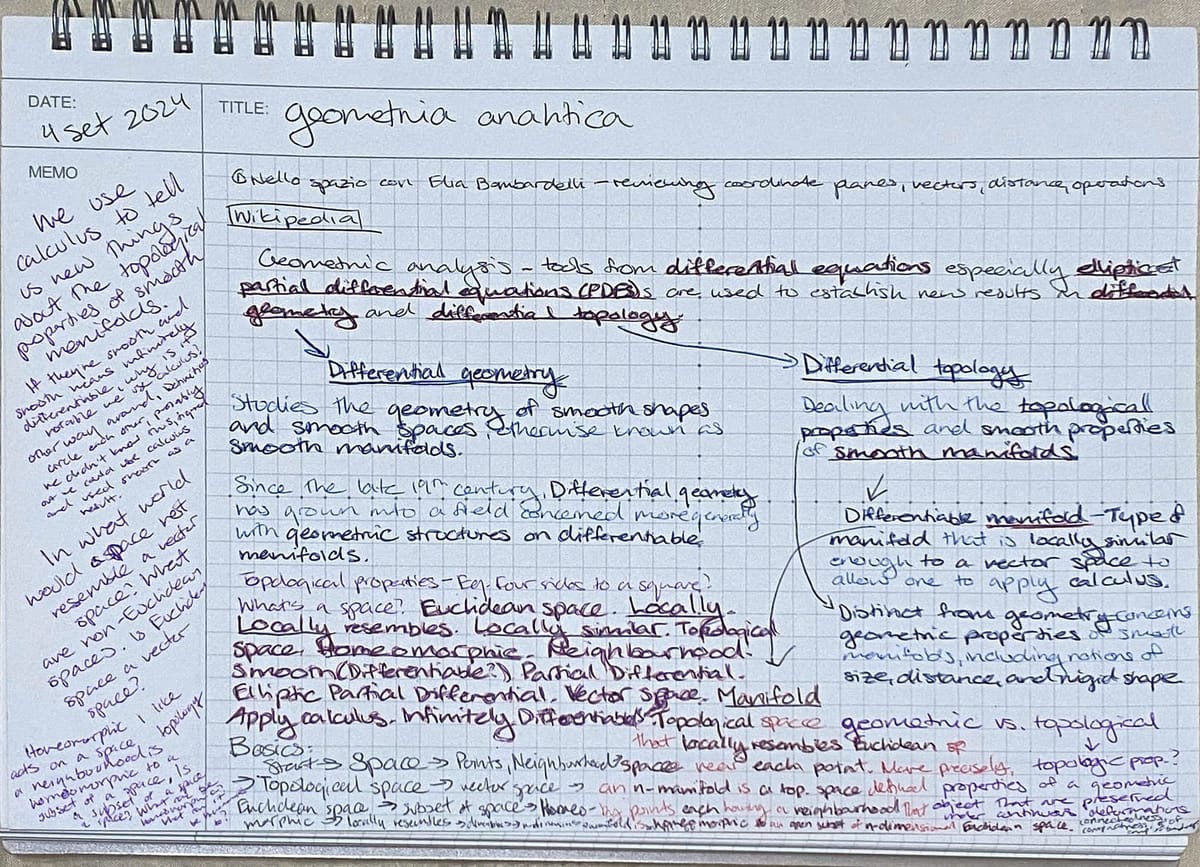 DATE:
4 set 2024
TITLE: geometria analitica
MEMO
We use
calculus to tell
us new things
about the topological
poperties of smooth
manifolds.
If they're smooth and
smooth means infinitely
differentiable, why is it
notable we use calculus?
Other way around, Definitions
circle each other, probably
we didn't know this, figured
out we could use calculus
and used smooth as a
result.
In what world
would a space not
resemble a vector
space? What
are non-Euclidean
spaces. Is Euclidean
space a vector
space?
Homeomorphic I like
acts on a space topology
a neighbourhood is
homeomorphic to a
subset of a space, is
a subset of a space
① Nello spazio con Elia Bombardelli - reviewing coordinate planes, vectors, distance, operations
Wikipedia
Geometric analysis - tools from differential equations especially elliptic
partial differential equations (PDEs)s are used to establish new results in differential
geometry and differential topology.
Differential geometry
Studies the geometry of smooth shapes
and smooth spaces, otherwise known as
smooth manifolds.
Since the late 19th century, Differential geometry
has grown into a field concerned more generally
with geometric structures on differentiable
manifolds.
Topological properties - Eg. four sides to a square?
What's a space? Euclidean space. Locally.
Locally resembles. Locally similar. Topological
space. Homeomorphic. Neighbourhood.
Smooth (Differentiable?) Partial Differential.
Elliptic Partial Differential. Vector Space. Manifold
Apply calculus. Infinitely Differentiable
Differential topology
Dealing with the topological
properties and smooth properties
of smooth manifolds
Differentiable manifold - Type of
manifold that is locally similar
enough to a vector space to
allow one to apply calculus.
Distinct from geometry-concerns
geometric properties of smooth
manifolds, including notions of
size, distance, and rigid shape
Topological space
that locally resembles Euclidean
space near each point. More precisely,
an n-manifold is a top. space defined
by points each having a neighbourhood that
is homeomorphic to an open subset of n-dimensional Euclidean space.
geometric vs. topological
topologic prop.?
properties of a geometric
object that are preserved
under continuous deformations
connectedness
Basics:
Start → Space → Points, Neighborhood
→ Topological space → vector space →
Euclidean space → subset of space → Homeo-
morphic → locally resembles →